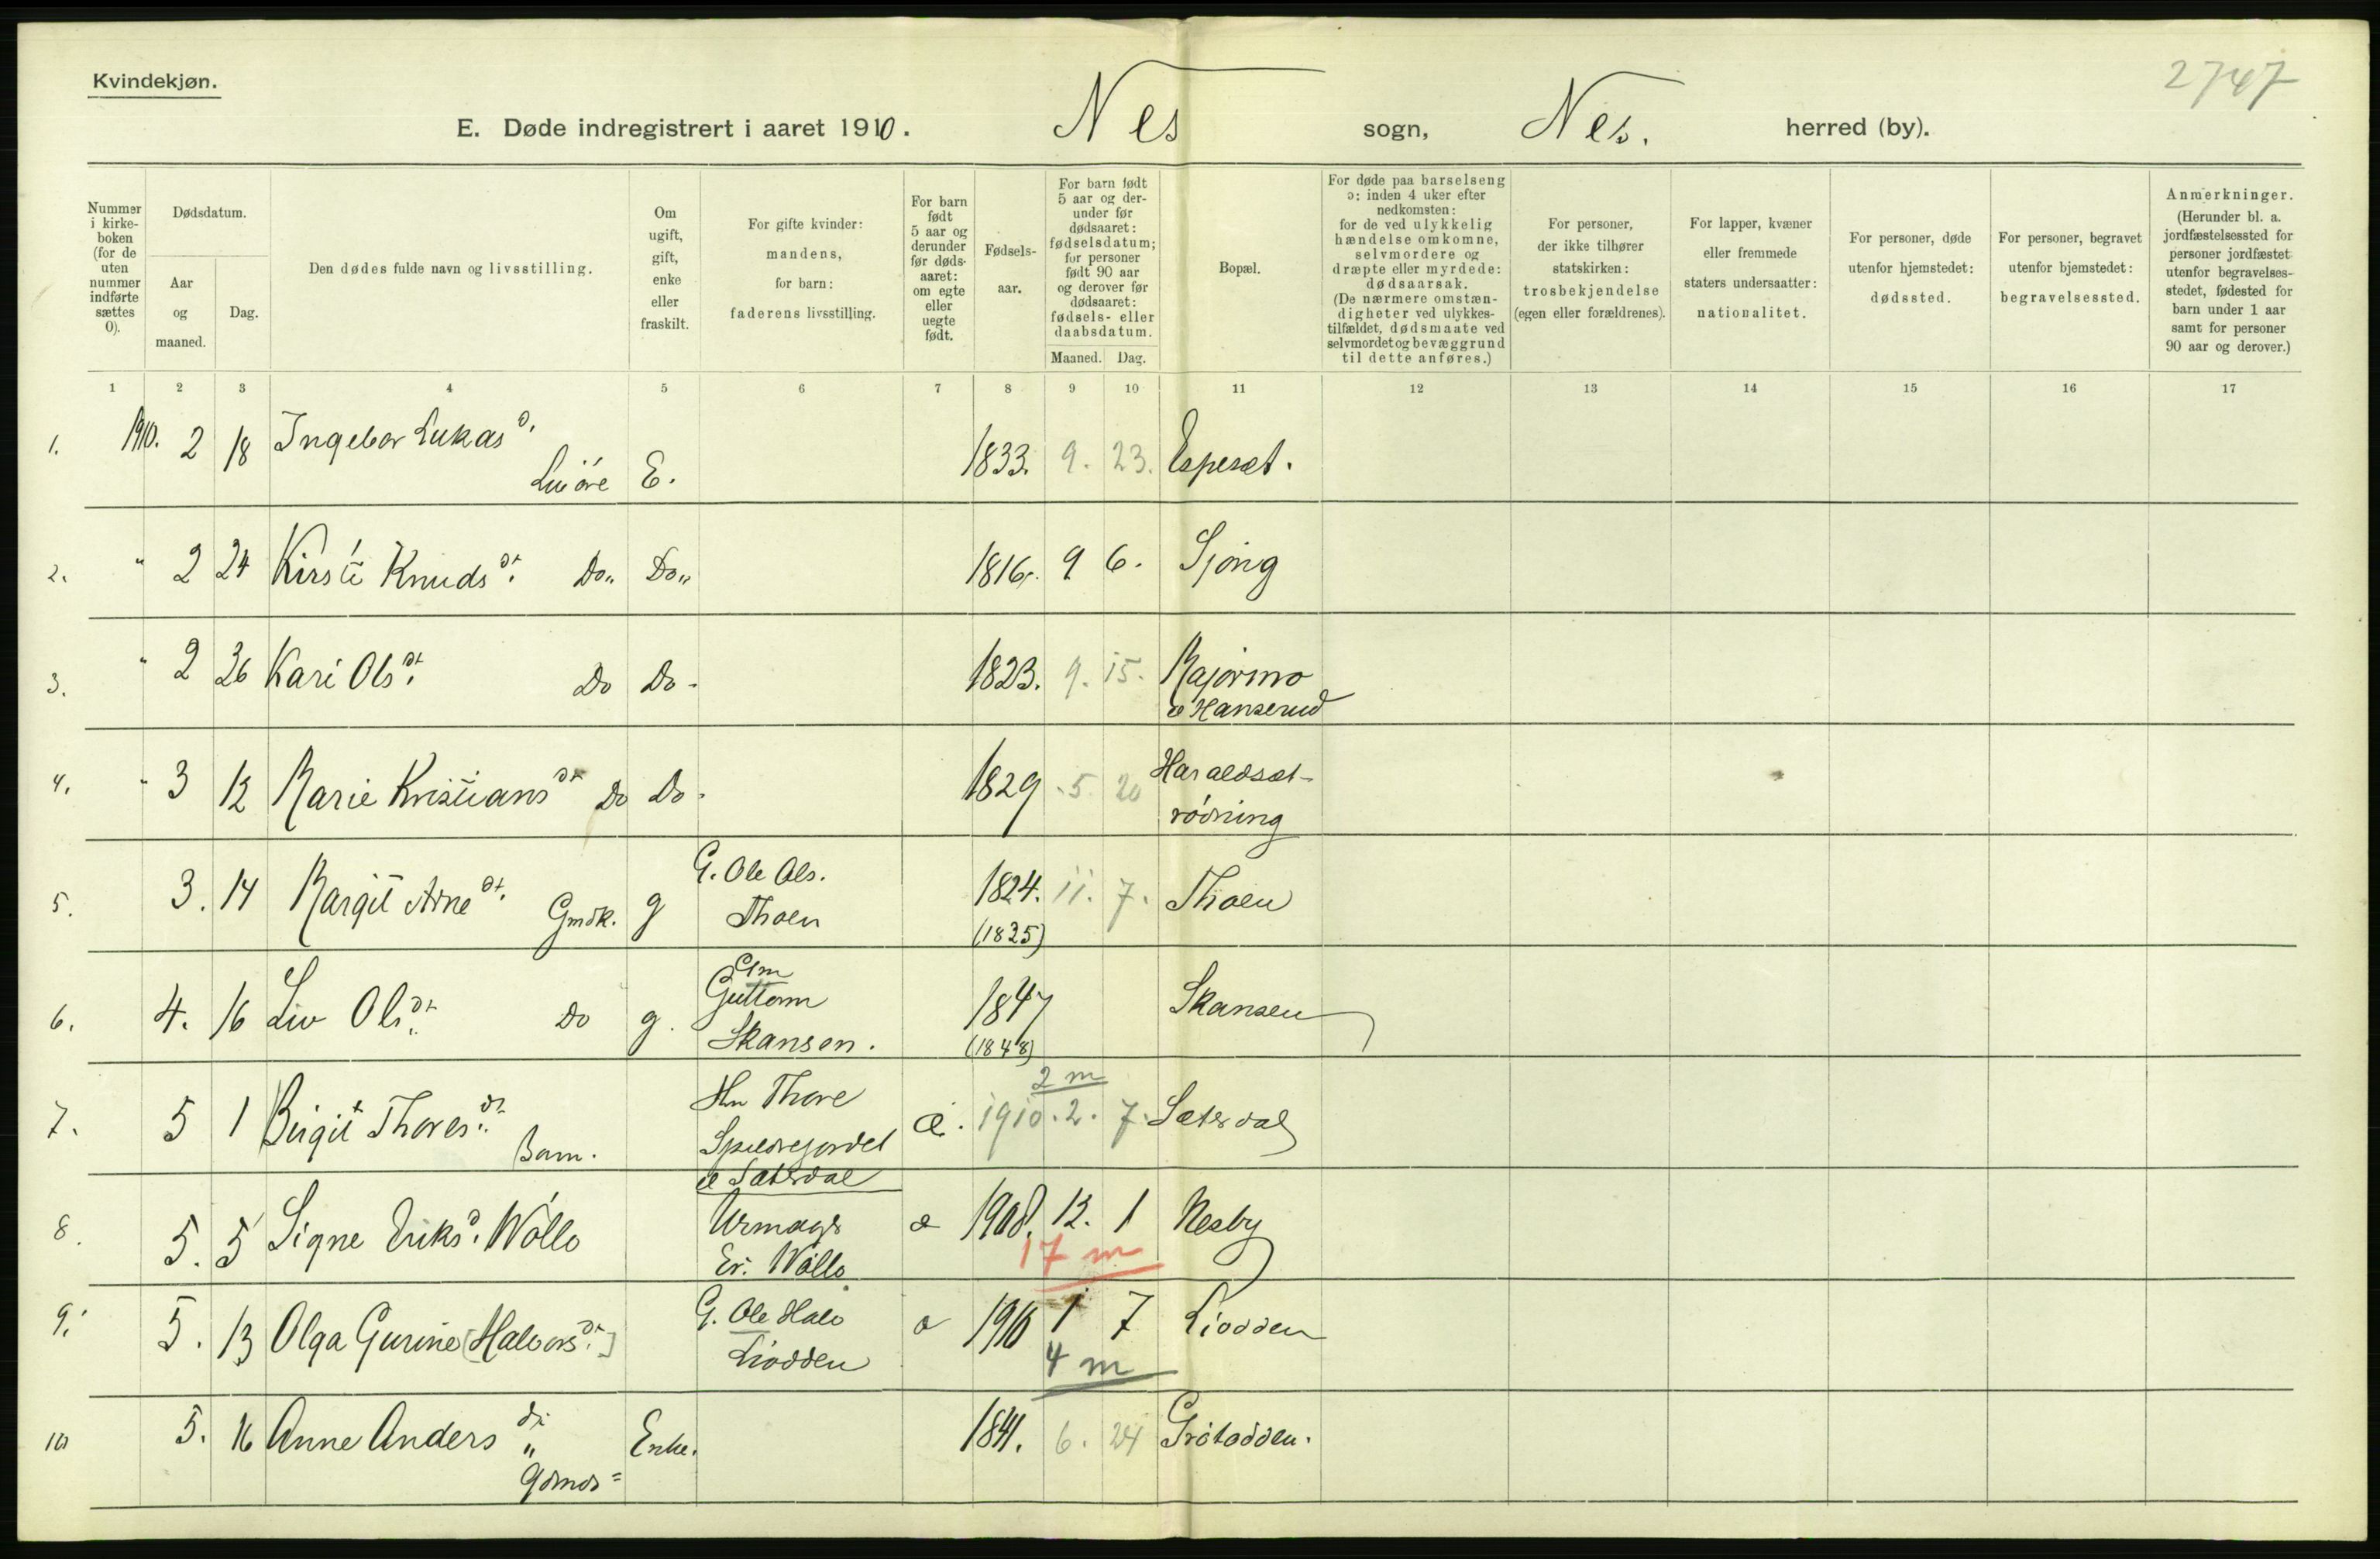 Kvindekjøn.
2747
E. Døde indregistrert i aaret 1910. Nes sogn, Nes. herred (by).
Nummer i kirke-boken (for de uten nummer indførte sættes 0).
Dødsdatum.
Aar og maaned.
Dag.
Den dødes fulde navn og livsstilling.
Om ugift, gift, enke eller fraskilt.
For gifte kvinder: mandens, for barn: faderens livsstilling.
For barn født 5 aar og derunder før døds-aaret: om egte eller uegte født.
Fødsels-aar.
For barn født 5 aar og der-under før dødsaaret: fødselsdatum; for personer født 90 aar og derover før dødsaaret: fødsels- eller daabsdatum.
Maaned. Dag.
Bopæl.
For døde paa barselseng ɔ: inden 4 uker efter nedkomsten: for de ved ulykkelig hændelse omkomne, selvmordere og dræpte eller myrdede: dødsaarsak. (De nærmere omstæn-digheter ved ulykkes-tilfældet, dødsmaate ved selvmordet og bevæggrund til dette anføres.)
For personer, der ikke tilhører statskirken: trosbekjendelse (egen eller forældrenes).
For lapper, kvæner eller fremmede staters undersaatter: nationalitet.
For personer, døde utenfor hjemstedet: dødssted.
For personer, begravet utenfor hjemstedet: begravelsessted.
Anmerkninger. (Herunder bl. a. jordfæstelsessted for personer jordfæstet utenfor begravelses-stedet, fødested for barn under 1 aar samt for personer 90 aar og derover.)
1 2 3 4 5 6 7 8 9 10 11 12 13 14 15 16 17
1. 1910. 2 18 Ingebor Lukas d.
E. 1833. 9. 23. Espeset.
2. " 2 24 Kirsti Knuds dt. Do,, Do,, 1816. 9 6. Sjong
3. " 2 26 Kari Ols dt. Do Do. 1823. 9. 15. Majormo
e Hanserud
4. " 3 12 Marie Kristians dt Do Do. 1829 5. 20 Haraldset-
rødning
5. 3. 14 Margit Arne dt. Gmdk. g G. Ole Ols.
Thoen 1824. 11. 7. Thoen
(1825)
6. 4. 16 Liv Ols dt. Do g. Gm
Guttorm
Skansen. 1847 Skansen
(1848)
7. 5 1 Birgit Thores dt. Barn. Hm Thore
Spildrejordet
e Sæterdal æ. 1910. 2. 7. Sæterdal
2 m
8. 5. 5 Signe Eriks d. Wøllo Urmagr
Er. Wøllo æ 1908. 12. 1 Nesby
17 m
9. 5. 13 Olga Gurine [Halvors dt.] G. Ole Halv
Liodden 1910 1 7 Liodden
4 m
10 5. 16 Anne Anders dt. Enke. 1841. 6. 24 Grøtodden.